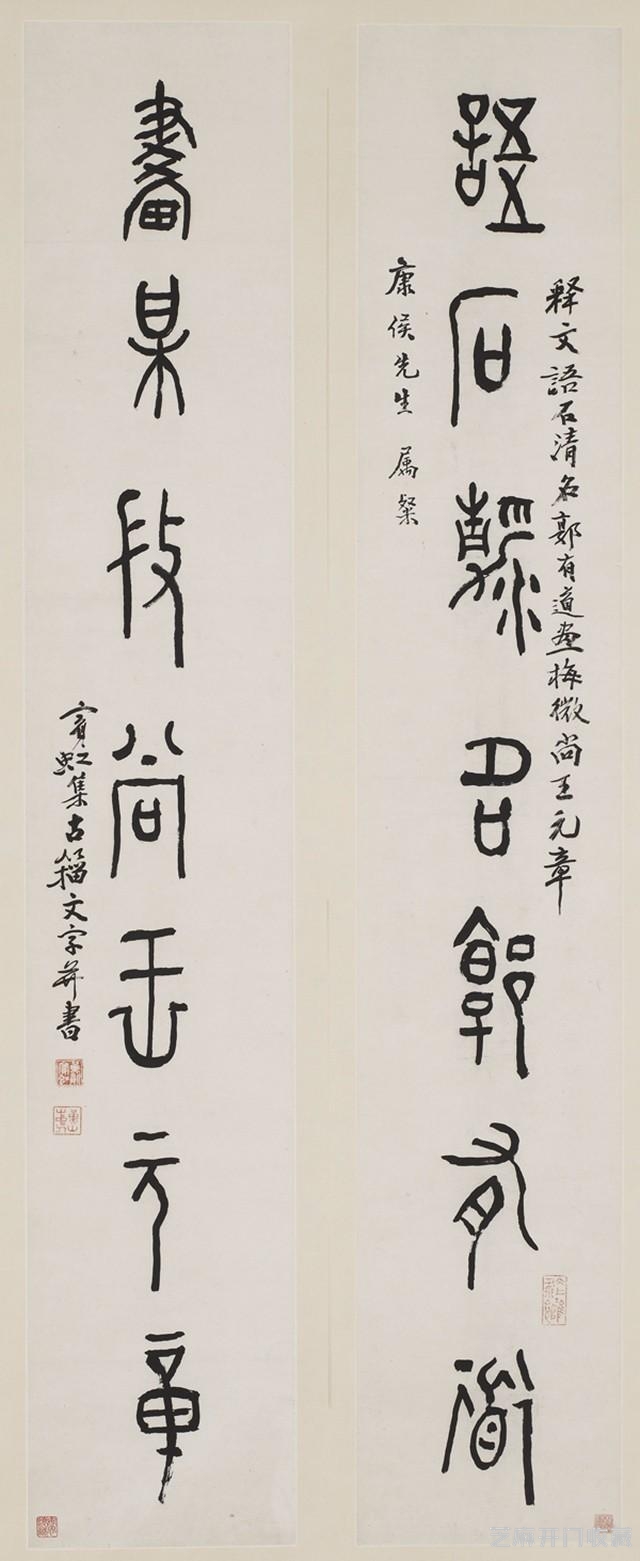 释文語石清名郭有道画梅微尚王元章
語石清名郭有道
康侯先生 属粲
畫某微尚王元章
賓虹集古籀文字并書
芝麻开门收藏